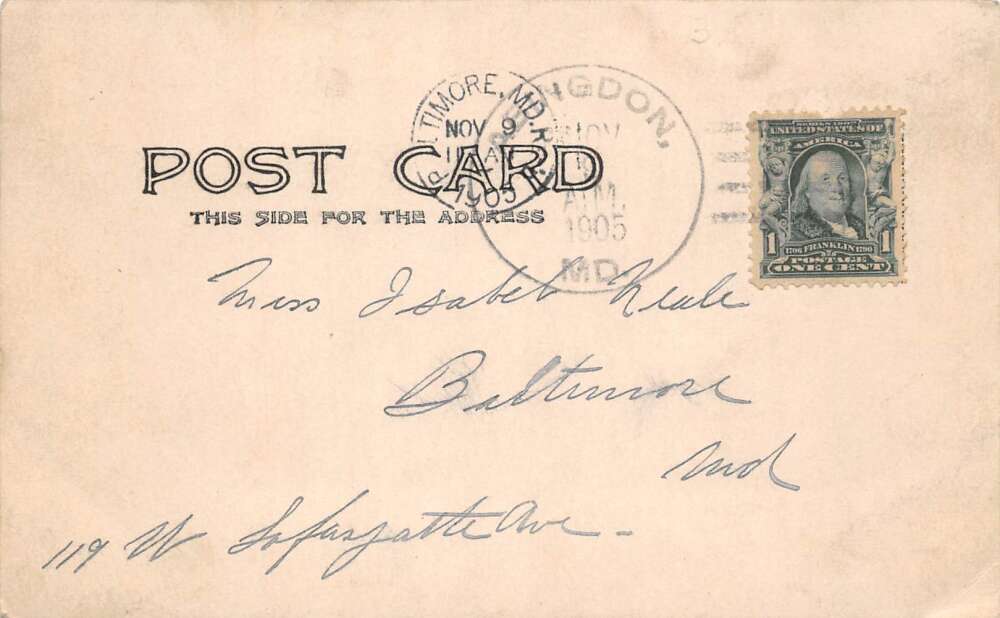 BALTIMORE, MD. R
NOV 9
1905
ABINGDON,
NOV
A.M.
1905
MD.
SERIES 1902
UNITED STATES OF
AMERICA
1 1706 FRANKLIN 1790 1
POSTAGE
ONE CENT
POST CARD
THIS SIDE FOR THE ADDRESS
Miss Isabel Neale
Baltimore
Md
119 W Lafayette Ave -